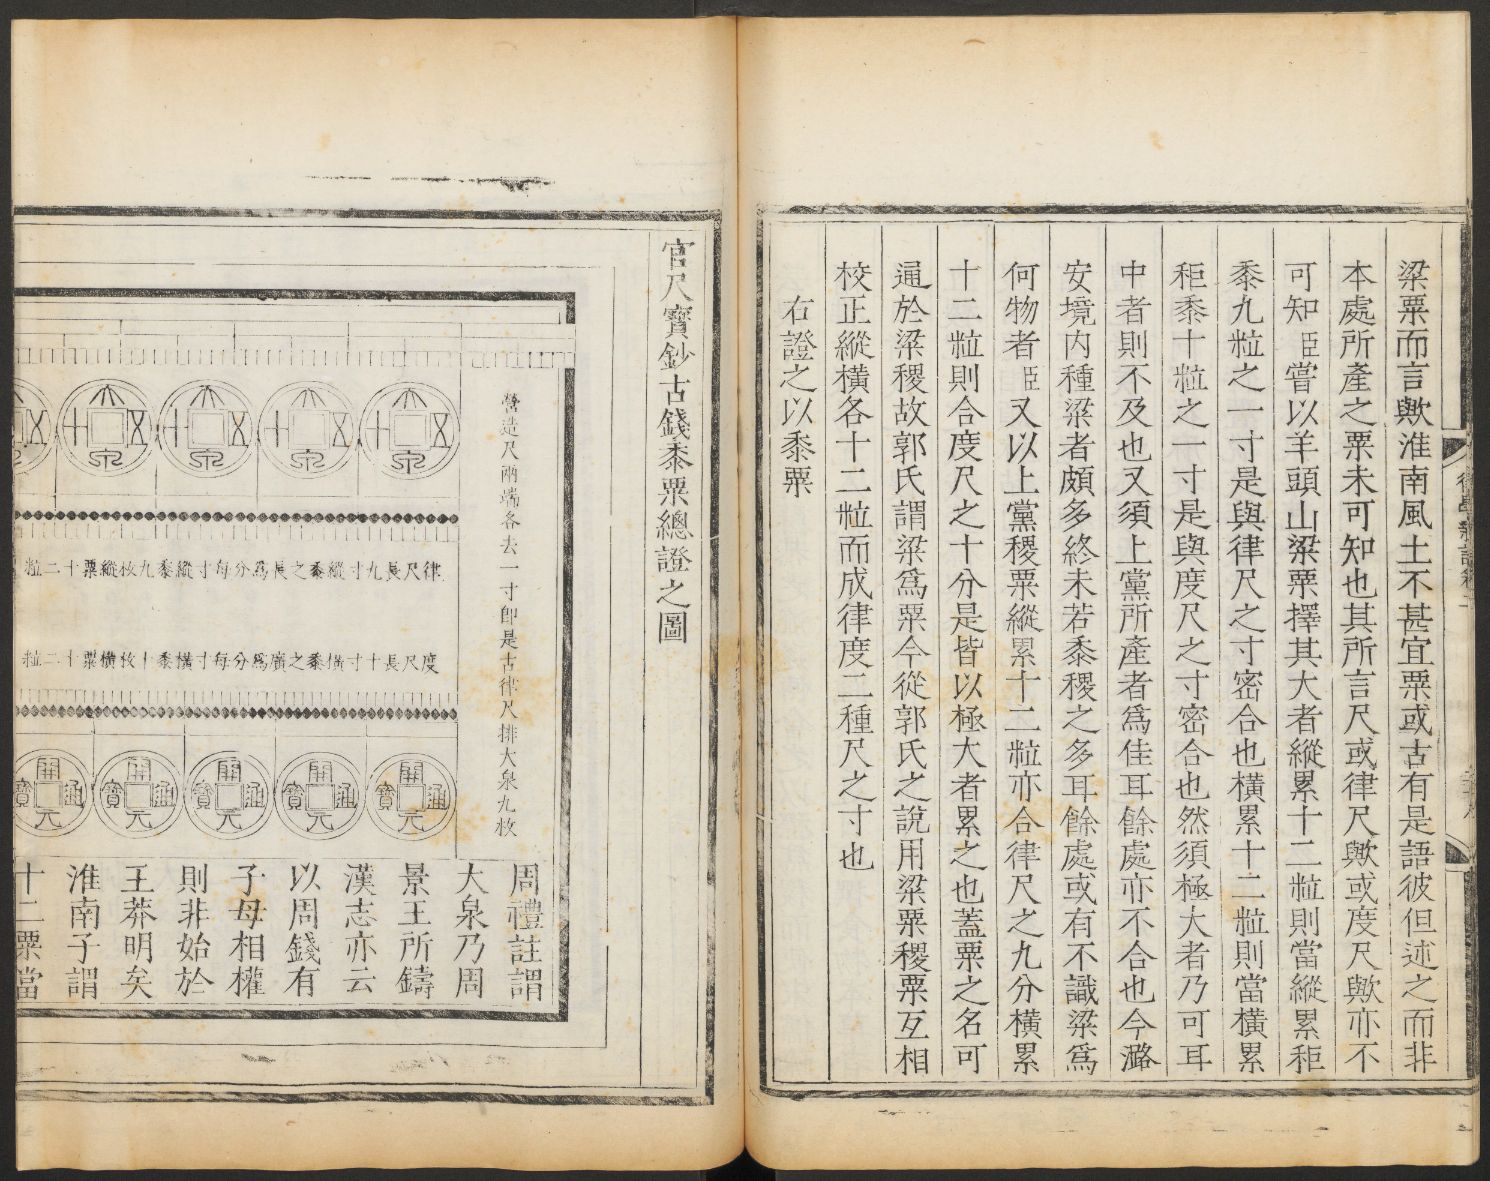 粱粟而言歟淮南風土不甚宜粟或古有是語彼但述之而非
本處所產之粟未可知也其所言尺或律尺歟或度尺歟亦不
可知臣嘗以羊頭山粱粟擇其大者縱累十二粒則當縱累秬
黍九粒之一寸是與律尺之寸密合也橫累十二粒則當橫累
秬黍十粒之一寸是與度尺之寸密合也然須極大者乃可耳
中者則不及也又須上黨所產者爲佳耳餘處亦不合也今潞
安境內種粱者頗多終未若黍稷之多耳餘處或有不識粱爲
何物者臣又以上黨稷粟縱累十二粒亦合律尺之九分橫累
十二粒則合度尺之十分是皆以極大者累之也蓋粟之名可
通於粱稷故郭氏謂粱爲粟今從郭氏之說用粱粟稷粟互相
校正縱橫各十二粒而成律度二種尺之寸也
右證之以黍粟
官尺寶鈔古錢黍粟總證之圖
營造尺兩端各去一寸卽是古律尺排大泉九枚
大泉五十
大泉五十
大泉五十
大泉五十
律尺長九寸縱黍之長爲分每寸縱黍九枚縱粟十二粒
度尺長十寸橫黍之廣爲分每寸橫黍十枚橫粟十二粒
開元通寶
開元通寶
開元通寶
開元通寶
開元通寶
周禮註謂
大泉乃周
景王所鑄
漢志亦云
以周錢有
子母相權
則非始於
王莽明矣
淮南子謂
十二粟當